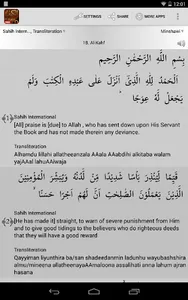 12:01
SETTINGS SHARE MORE APPS
Sahih Intern... , Transliteration Minshawi
18. Al-Kahf
بِسْمِ اللَّهِ الرَّحْمَٰنِ الرَّحِيمِ
الْحَمْدُ لِلَّهِ الَّذِي أَنزَلَ عَلَىٰ عَبْدِهِ الْكِتَٰبَ وَلَمْ
يَجْعَل لَّهُ عِوَجَا ۜ
(1) Sahih International
[All] praise is [due] to Allah , who has sent down upon His Servant
the Book and has not made therein any deviance.
Transliteration
Alhamdu lillahi allatheeanzala AAala AAabdihi alkitaba walam
yajAAal lahu AAiwaja
قَيِّمًا لِّيُنذِرَ بَأْسًا شَدِيدًا مِّن لَّدُنْهُ وَيُبَشِّرَ الْمُؤْمِنِينَ
الَّذِينَ يَعْمَلُونَ الصَّٰلِحَٰتِ أَنَّ لَهُمْ أَجْرًا حَسَنًا
(2) Sahih International
[He has made it] straight, to warn of severe punishment from Him
and to give good tidings to the believers who do righteous deeds
that they will have a good reward
Transliteration
Qayyiman liyunthira ba/san shadeedanmin ladunhu wayubashshira
almu/mineena allatheenayaAAmaloona assalihati anna lahum ajran
hasana